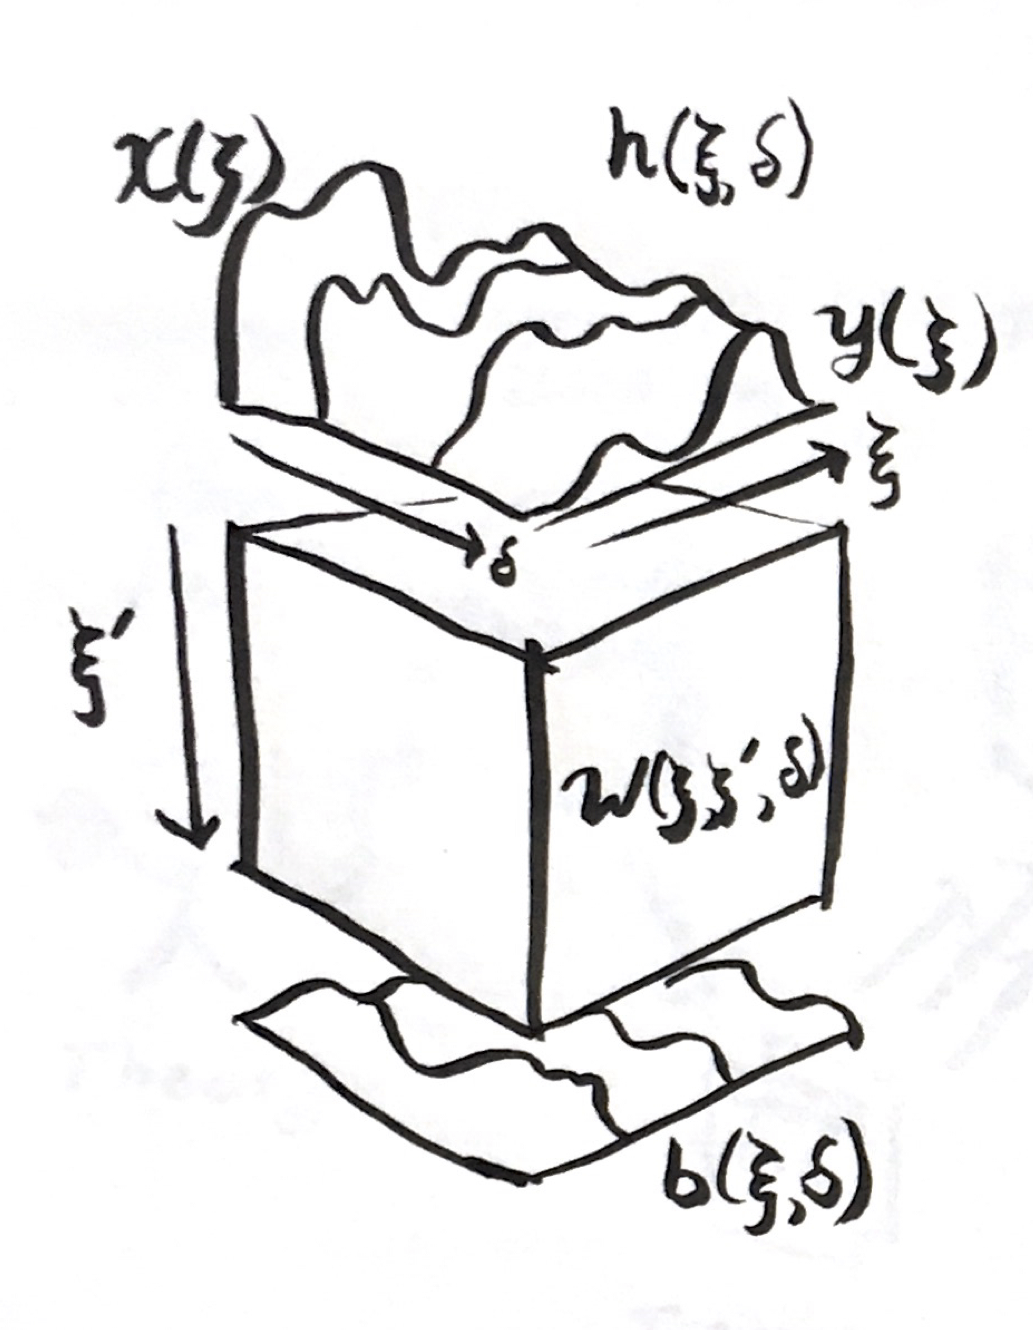 x(ξ)
h(ξ,δ)
y(ξ)
ξ
δ
ξ′
w(ξ,ξ′,δ)
b(ξ,δ)